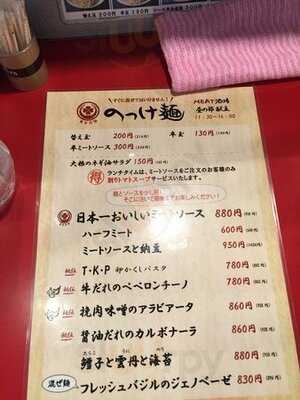 すぐに混ぜてはいけません！
のっけ麺
MEAT酒場
昼の部 献立
11:30〜16:00
替え玉 200円
半ミートソース 300円
生玉 130円
大根のネギ油サラダ 150円
得 ランチタイムは、ミートソースをご注文のお客様のみ
割りトマトスープサービスいたします。
麺とソースを少し残し
そこに注いで最後までお楽しみください！
日本一おいしいミートソース 880円
ハーフミート 600円
ミートソースと納豆 950円
T・K・P 卵かくしパスタ 780円
牛だれのペペロンチーノ 780円
挽肉味噌のアラビアータ 860円
醤油だれのカルボナーラ 860円
鱈子と雲丹と海苔 880円
混ぜ麺 フレッシュバジルのジェノベーゼ 830円